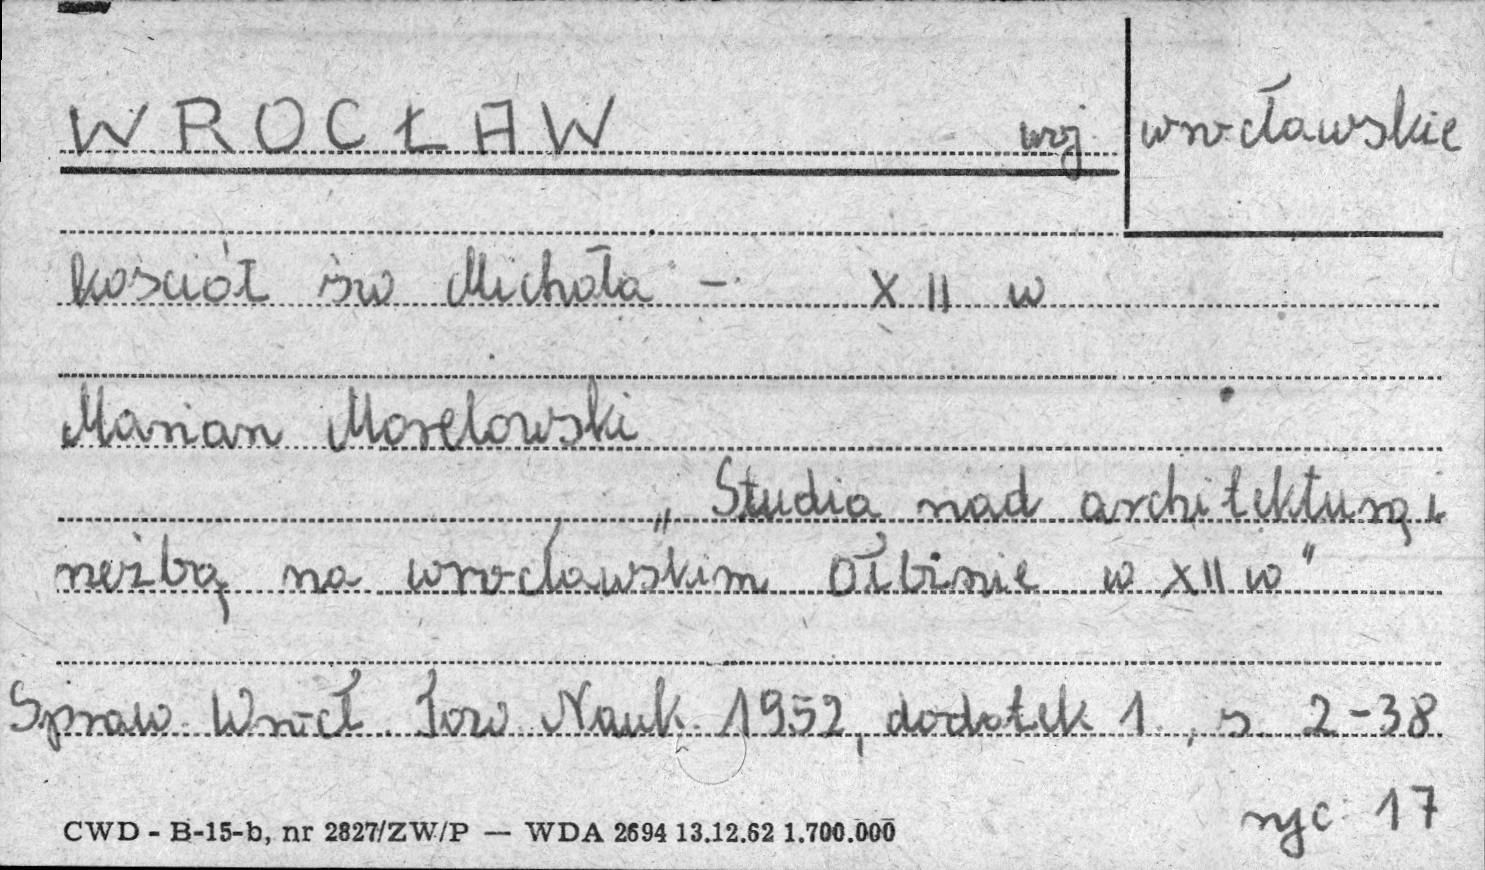 WROCŁAW woj wrocławskie
kościół św Michała - XII w
Marian Morelowski
„Studia nad architekturą i
rzeźbą na wrocławskim Ołbinie w XII w"
Spraw. Wrocł. Tow Nauk. 1952, dodatek 1., s. 2-38
ryc. 17
CWD - B-15-b, nr 2827/ZW/P — WDA 2694 13.12.62 1.700.000